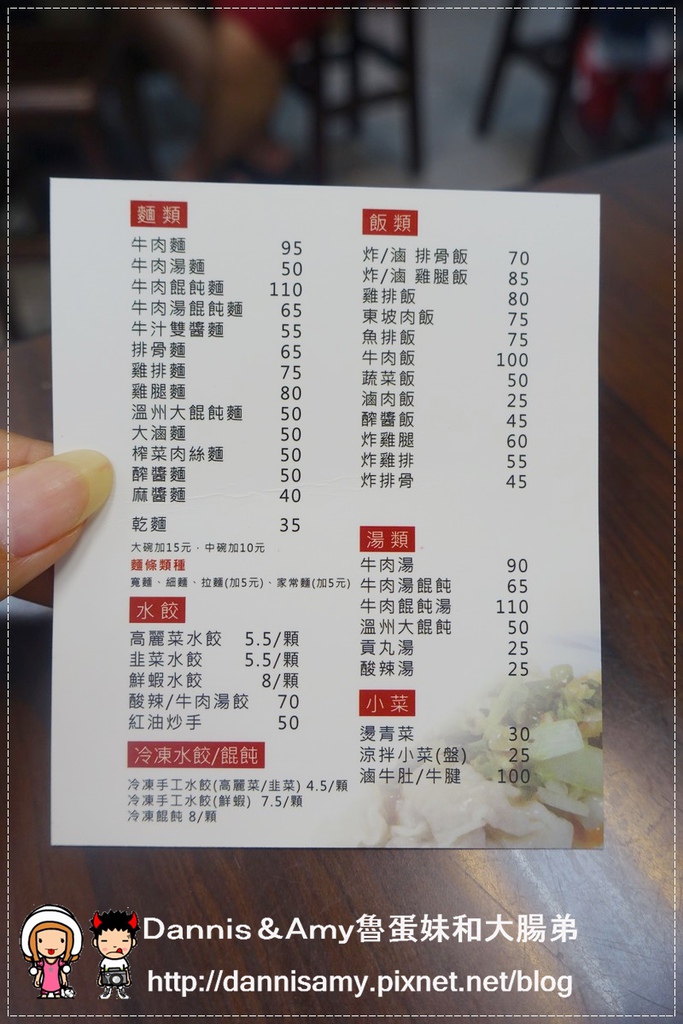 麵類
牛肉麵 95
牛肉湯麵 50
牛肉餛飩麵 110
牛肉湯餛飩麵 65
牛汁雙醬麵 55
排骨麵 65
雞排麵 75
雞腿麵 80
溫州大餛飩麵 50
大滷麵 50
榨菜肉絲麵 50
醡醬麵 50
麻醬麵 40
乾麵 35
大碗加15元﹐中碗加10元
麵條類種
寬麵、細麵、拉麵(加5元)、家常麵(加5元)
水餃
高麗菜水餃 5.5/顆
韭菜水餃 5.5/顆
鮮蝦水餃 8/顆
酸辣/牛肉湯餃 70
紅油炒手 50
冷凍水餃/餛飩
冷凍手工水餃(高麗菜/韭菜) 4.5/顆
冷凍手工水餃(鮮蝦) 7.5/顆
冷凍餛飩 8/顆
飯類
炸/滷 排骨飯 70
炸/滷 雞腿飯 85
雞排飯 80
東坡肉飯 75
魚排飯 75
牛肉飯 100
蔬菜飯 50
滷肉飯 25
醡醬飯 45
炸雞腿 60
炸雞排 55
炸排骨 45
湯類
牛肉湯 90
牛肉湯餛飩 65
牛肉餛飩湯 110
溫州大餛飩 50
貢丸湯 25
酸辣湯 25
小菜
燙青菜 30
涼拌小菜(盤) 25
滷牛肚/牛腱 100
Dannis＆Amy魯蛋妹和大腸弟
http://dannisamy.pixnet.net/blog